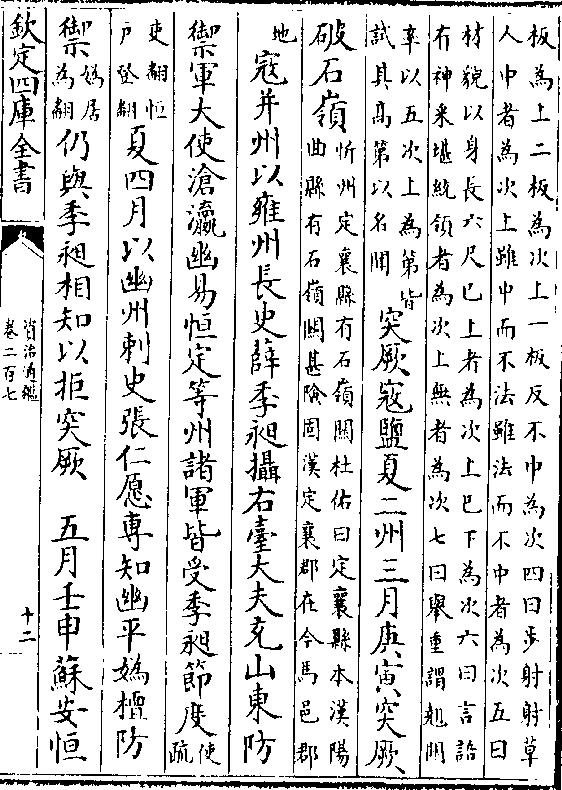 板為上二板為次上一板反不中為次四曰步射射草
人中者為次上雖中而不法雖法而不中者為次五曰
材貌以身長六尺已上者為次上已下為次六曰言語
有神采堪統領者為次上無者為次七曰舉重謂翹關
率以五次上為第皆
試其高第以名聞
突厥寇鹽夏二州三月庚寅突厥
破石嶺
忻州定襄縣有石嶺關杜佑曰定襄縣本漢陽
曲縣有石嶺關甚險固漢定襄郡在今馬邑郡
地
寇并州以雍州長史薛季昶攝右臺大夫充山東防
禦軍大使滄瀛幽易恒定等州諸軍皆受季昶節度
使
疏
吏翻恒
戶登翻
夏四月以幽州刺史張仁愿専知幽平媯檀防
禦
媯居
為翻
仍與季昶相知以拒突厥 五月壬申蘇安恒
欽定四庫全書
資治通鑑
卷二百七
十二